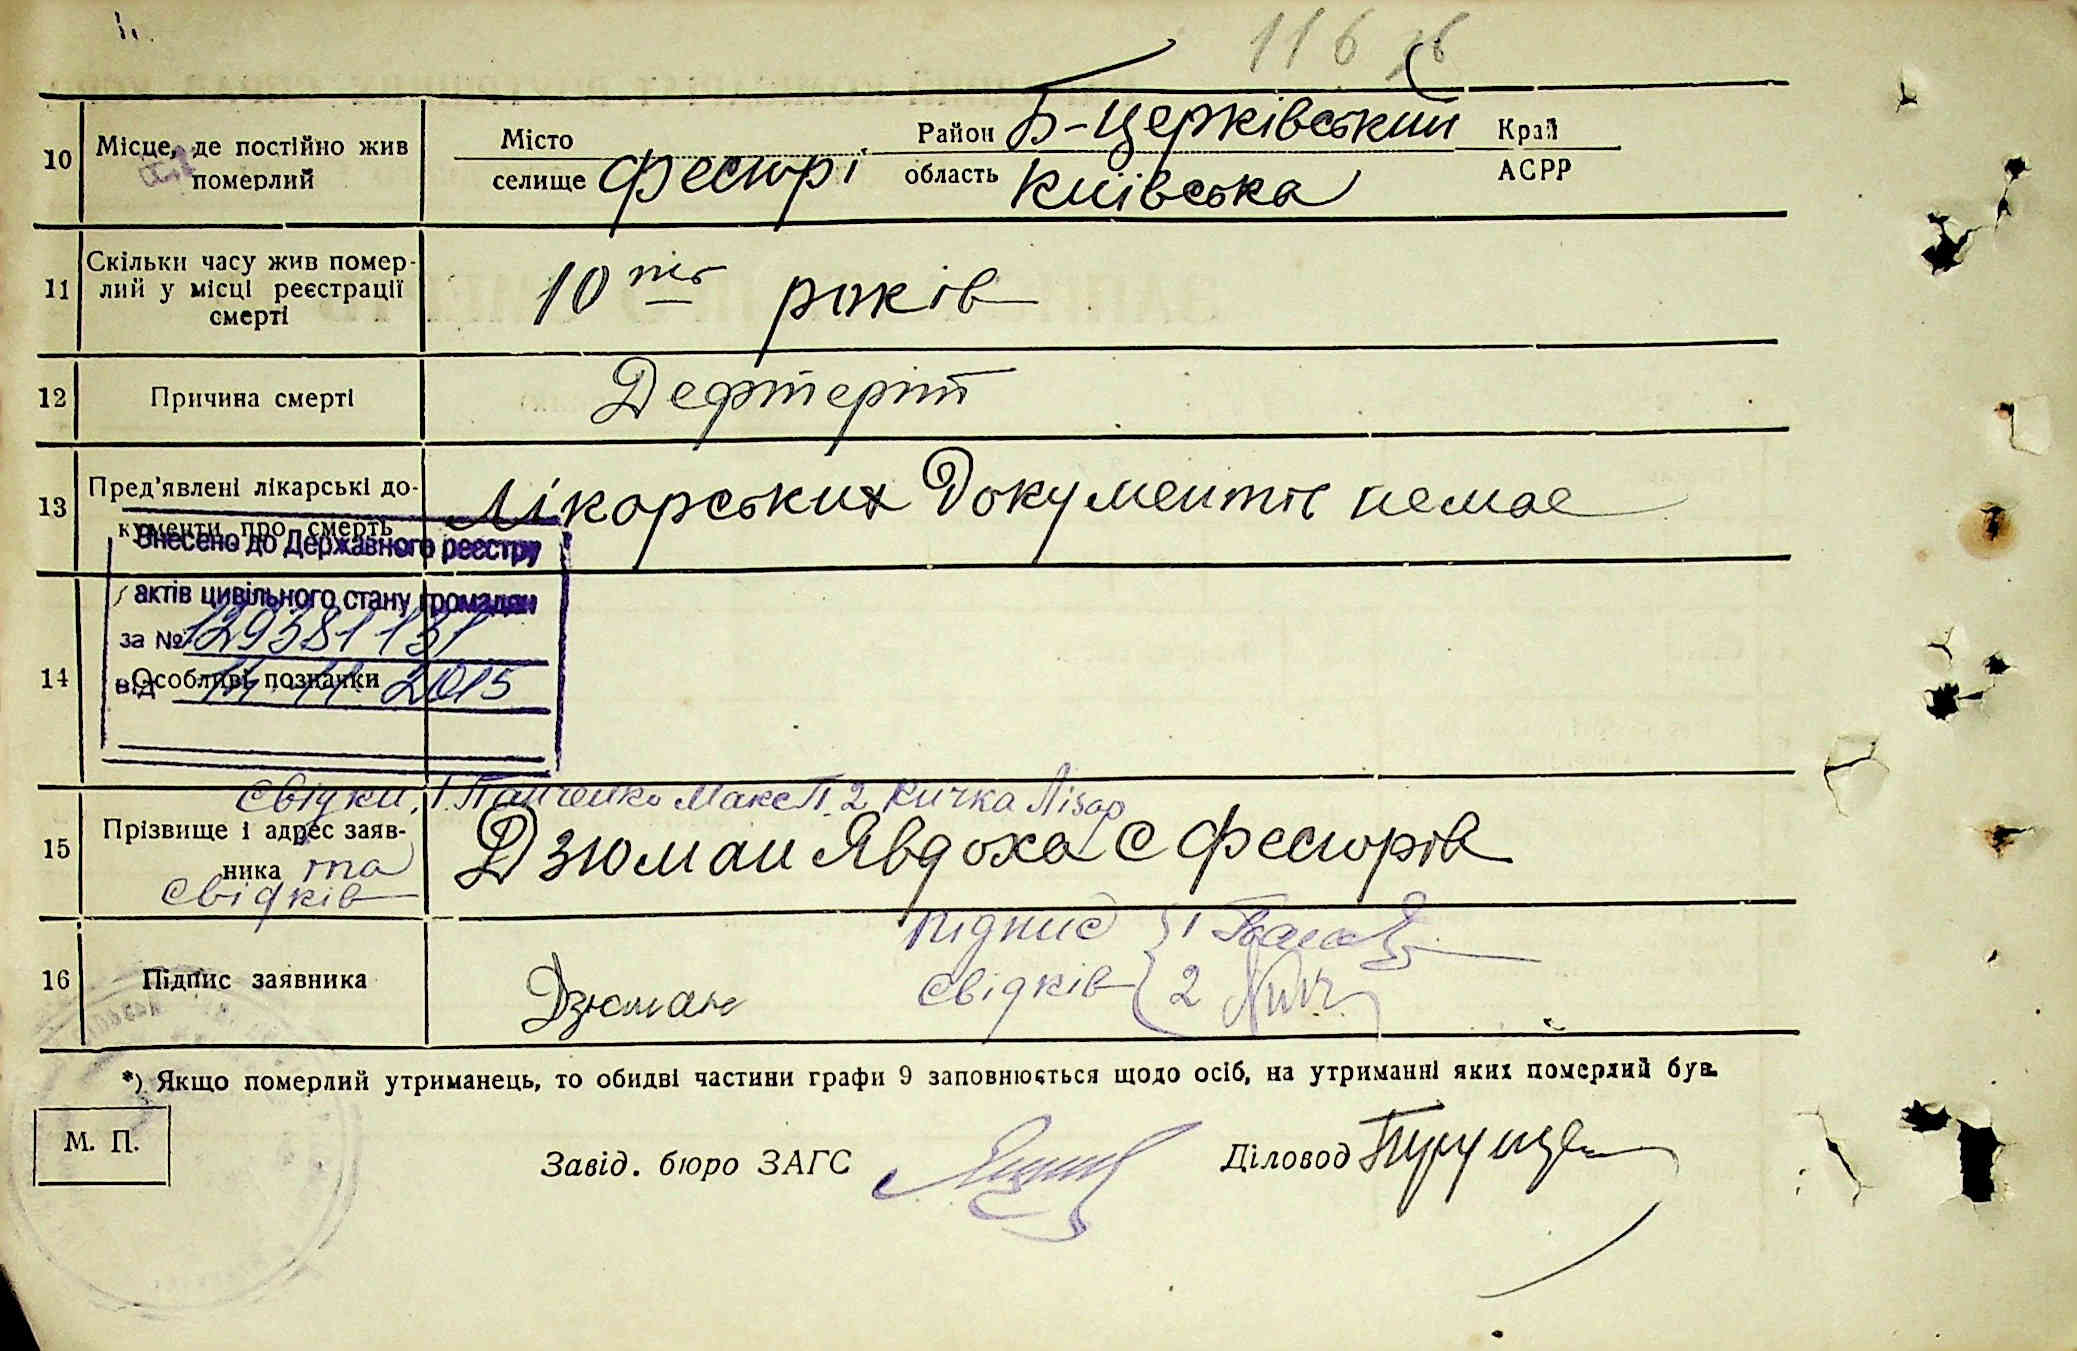 116
10 Місце, де постійно жив померлий Місто селище Фесюрі Район Б-Церківський область Київська Край АСРР
11 Скільки часу жив померлий у місці реєстрації смерті 10 ть років
12 Причина смерті Дефтеріт
13 Пред'явлені лікарські документи про смерть Лікарських документів немае
Внесено до Державного реєстру
актів цивільного стану громадян
за № 129381131
від 11.11.2015
14 Особливі позначки
Свідки, 1. Панченко Макс П. 2 Кичка Лізар
15 Прізвище і адрес заявника та свідків Дзюман Явдоха с Фесюрів
16 Підпис заявника Дзюман Підпис свідків 1 2
*) Якщо померлий утриманець, то обидві частини графи 9 заповнюється щодо осіб, на утриманні яких померлий був.
М. П.
Завід. бюро ЗАГС Діловод